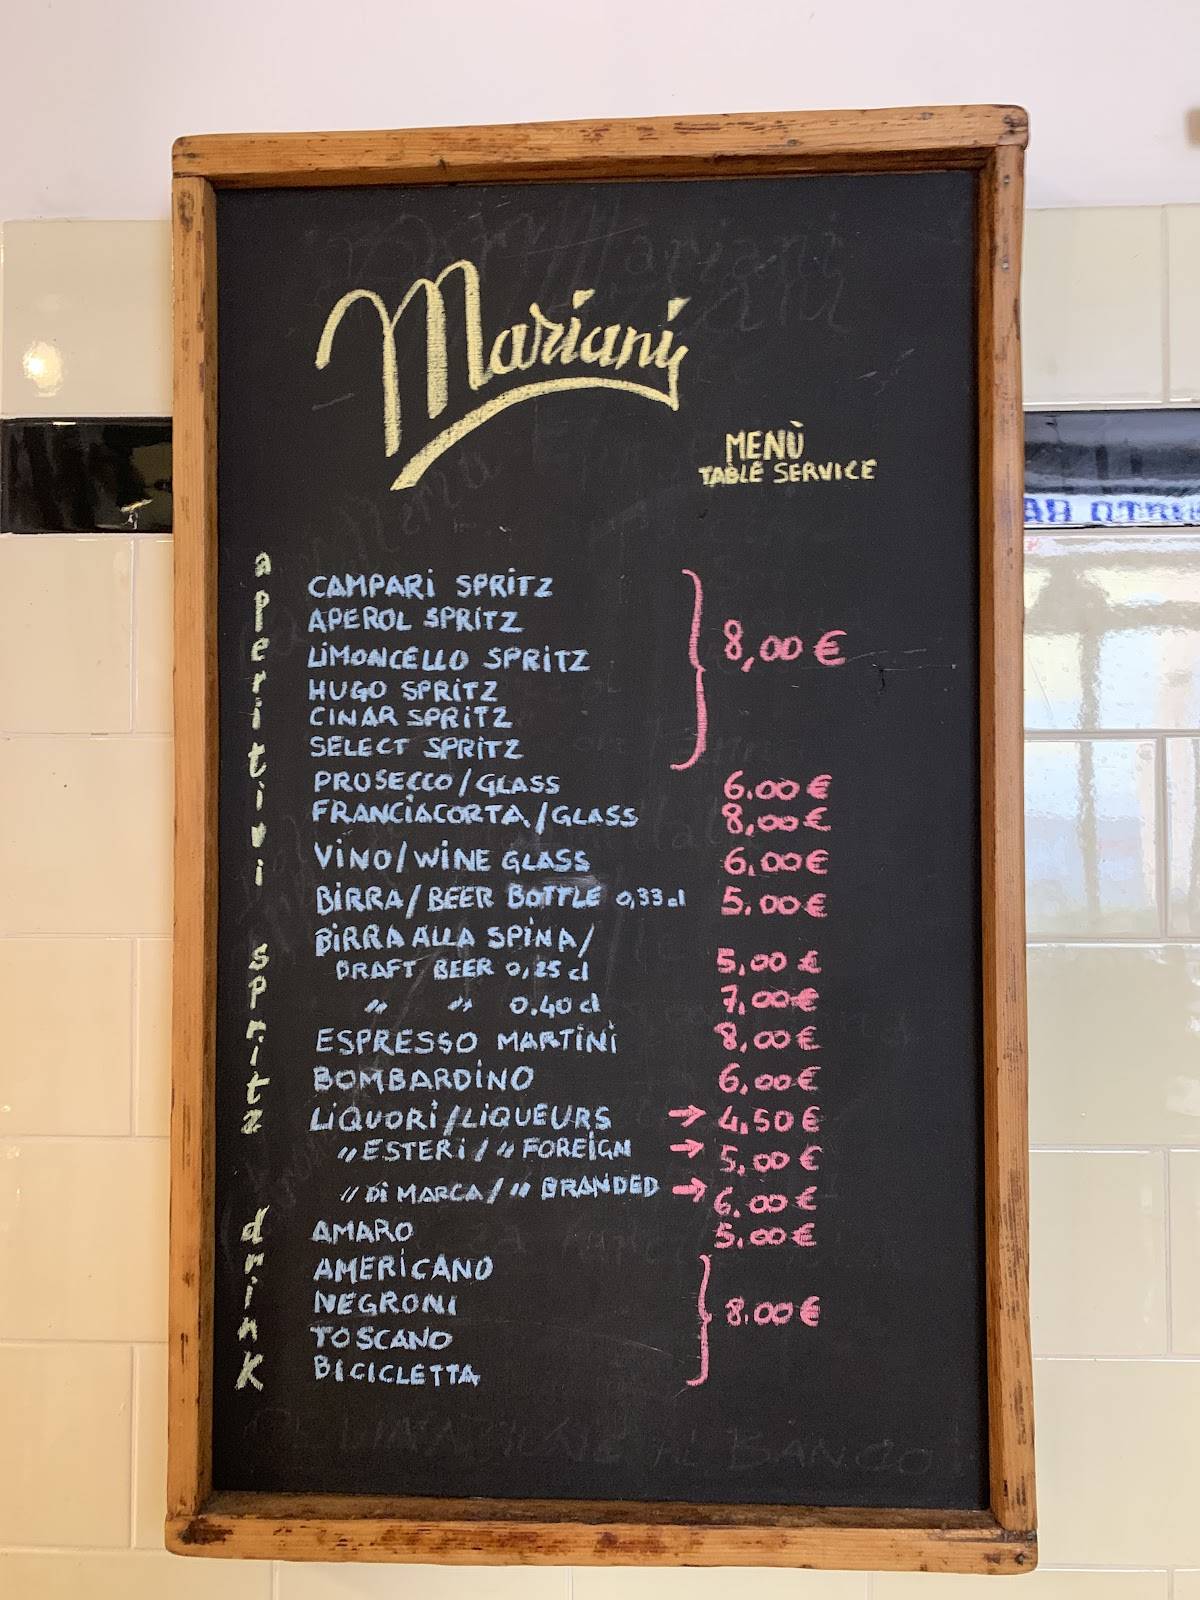 Mariani
MENÙ
TABLE SERVICE
aperitivi spritz drink
CAMPARI SPRITZ
APEROL SPRITZ
LIMONCELLO SPRITZ
8,00 €
HUGO SPRITZ
CINAR SPRITZ
SELECT SPRITZ
PROSECCO/GLASS 6.00 €
FRANCIACORTA/GLASS 8,00 €
VINO/WINE GLASS 6,00 €
BIRRA/BEER BOTTLE 0,33cl 5.00 €
BIRRA ALLA SPINA/
DRAFT BEER 0,25 cl 5,00 €
〃 〃 0.40 cl 7,00 €
ESPRESSO MARTINI 8,00 €
BOMBARDINO 6,00 €
LIQUORI/LIQUEURS → 4,50 €
〃 ESTERI/〃 FOREIGN → 5,00 €
〃 DI MARCA/〃 BRANDED → 6.00 €
AMARO 5,00 €
AMERICANO
NEGRONI 8.00 €
TOSCANO
BICICLETTA